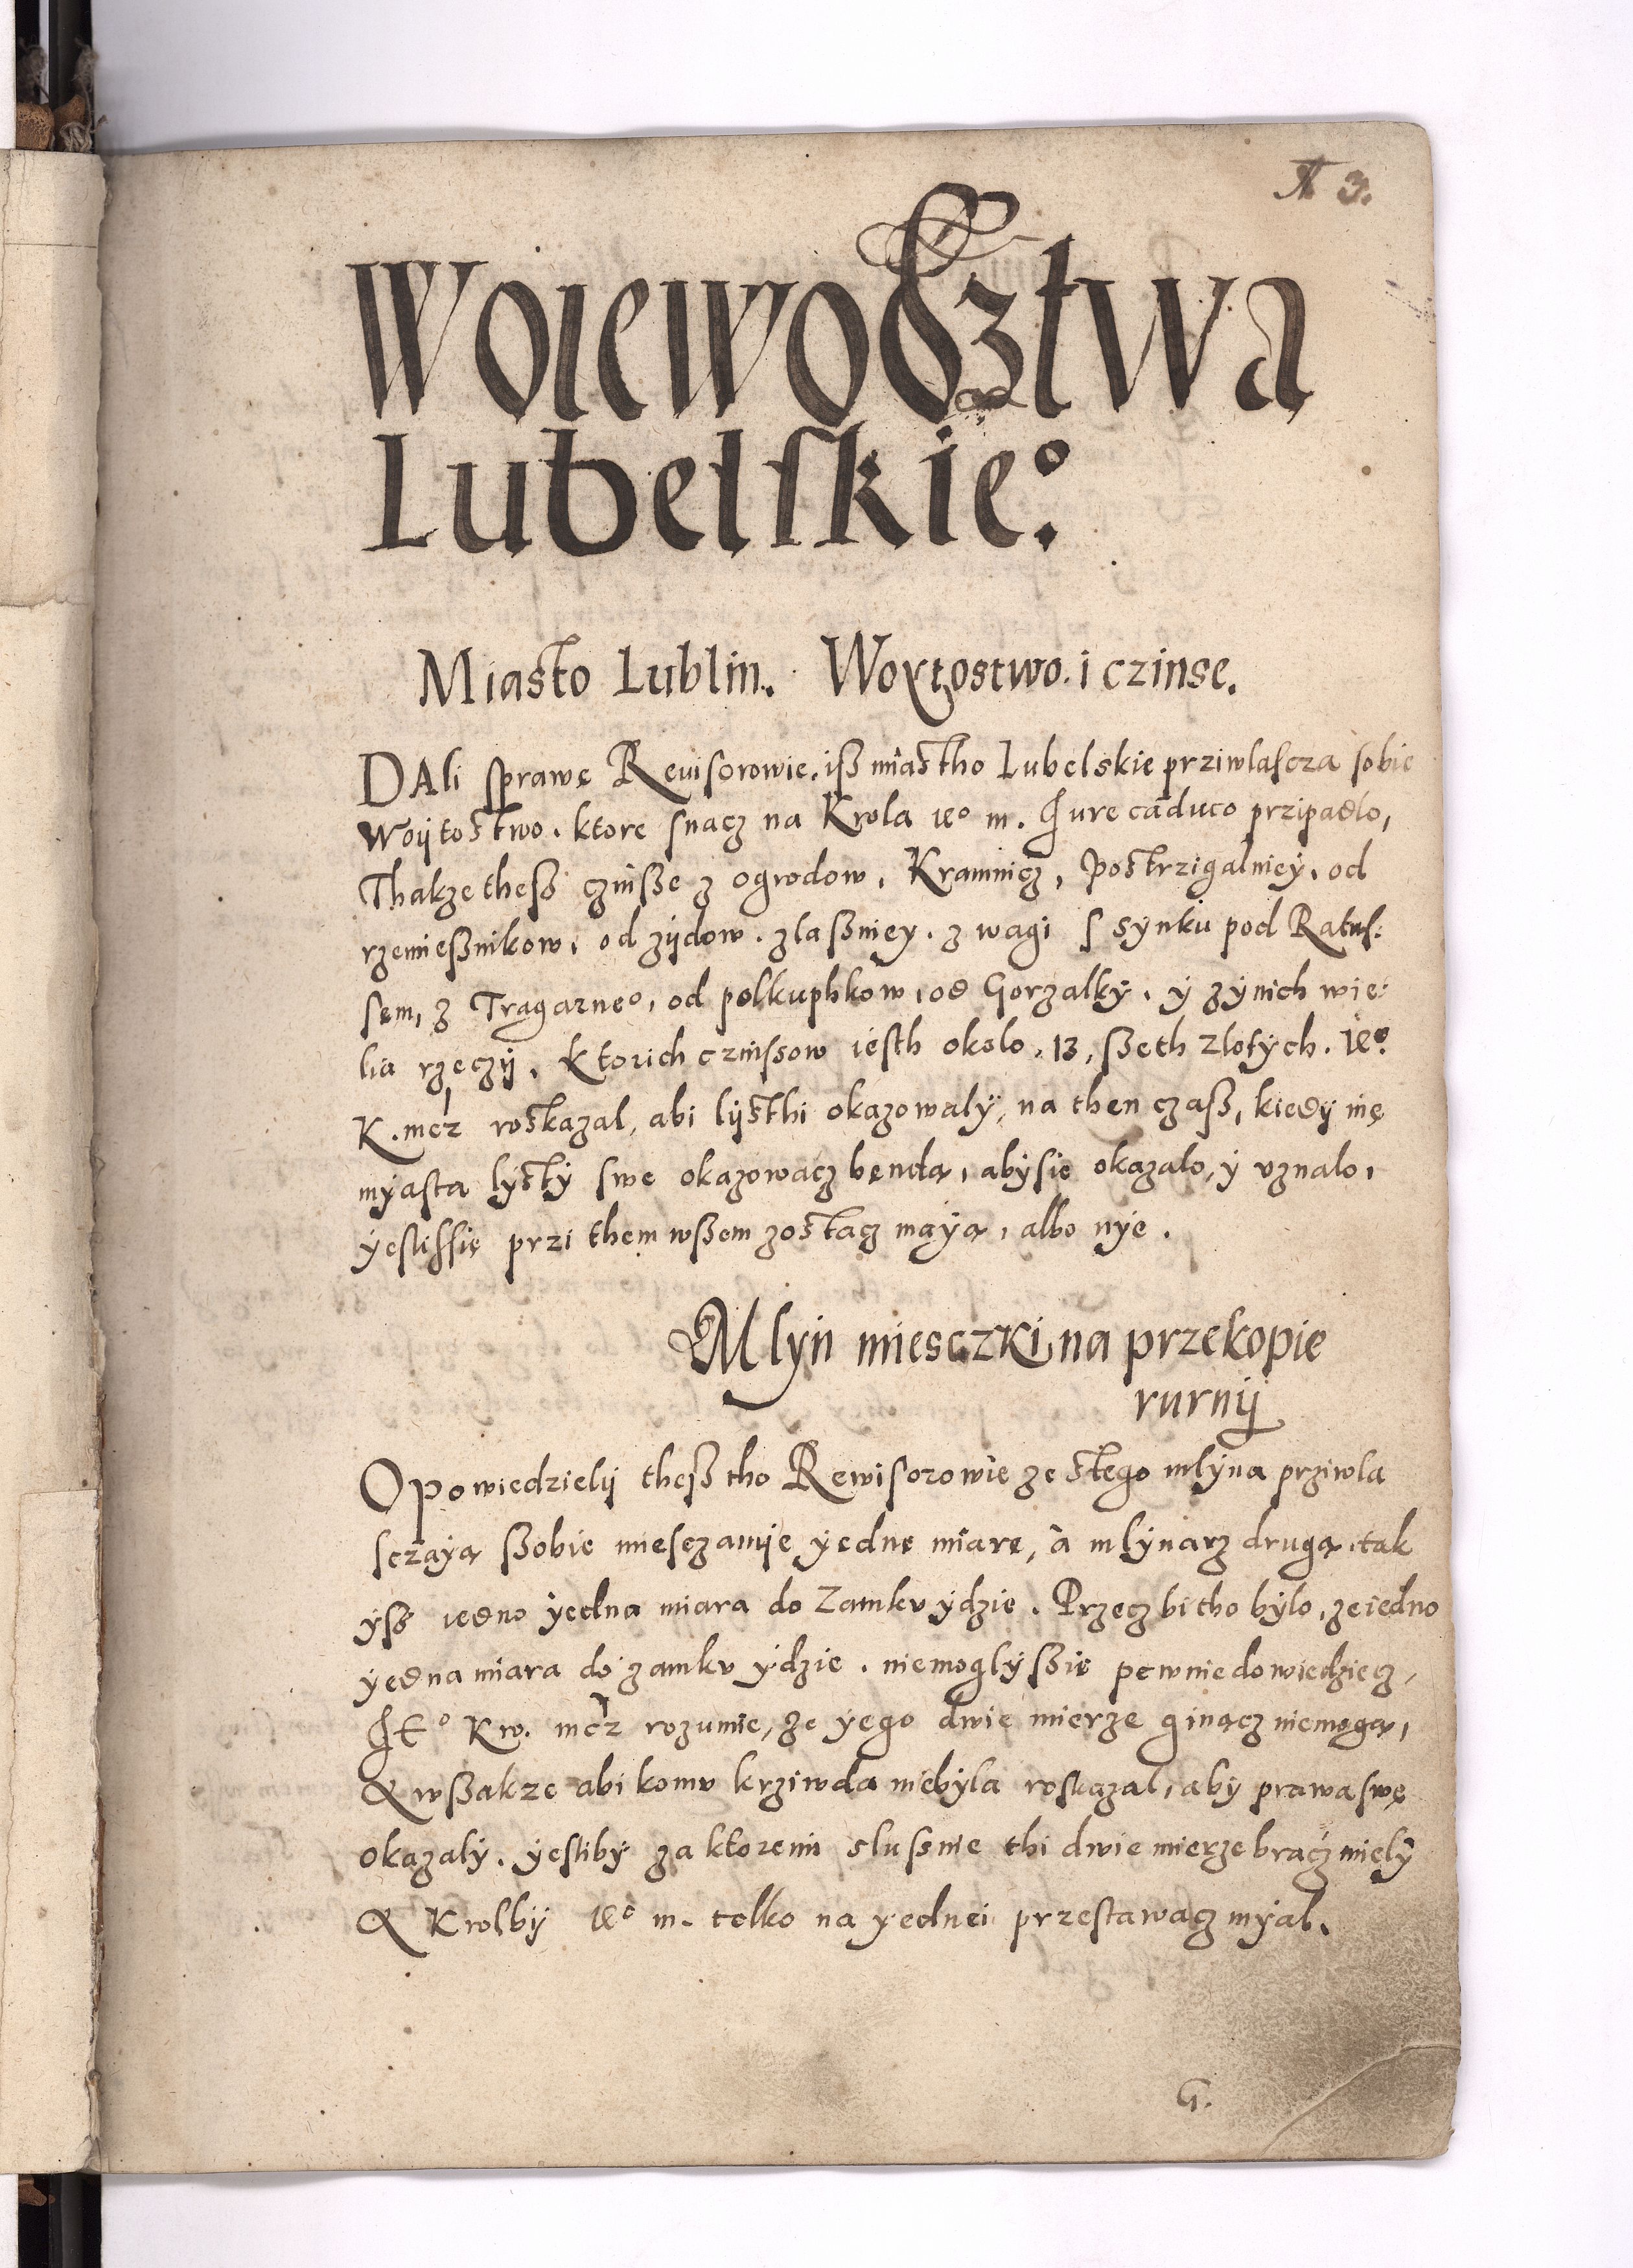 A 3.
Woiewodztwa
Lubelskie⁰.
Miasto Lublin. Woytostwo. i czinse.
DAli sprawę Reuisorowie. iß miastho Lubelskie prziwlascza sobie
Woijtostwo. ktore snacz na Krola ie⁰ m. Jure caduco przipadlo,
Thakze theß czinße z ogrodow, Kramnicz, Postrzigalniey, od
rzemießnikow, od zijdow. z laßniey. z wagi s synku pod Ratuſ:
sem, z Tragarne⁰, od polkuphkow, od Gorzalky. y zynich wie:
lia rzeczij. Ktorich czinssow iesth okolo. 13, ßeth zlotych. ie⁰.
K. mcz roskazal, abi lijsthi okazowaly, na then czaß, kiedy inę
myasta lysty swe okazowacz benda, abysie okazalo, y vznalo,
yeslissię przi them wßem zostacz maya, albo nye.
Mlyn miesczki na przekopie
rurnij
Opowiedzielij theß tho Rewisorowie ze stego mlyna prziwla
sczaya ßobie miesczanije yednę miarę, a mlynarz druga, tak
yß iedno yedna miara do Zamku ydzie. Przecz bi tho bylo, ze iedno
yedna miara do zamku ydzie. niemoglyßie pewnie dowiedziecz,
JE⁰ Kw. mcz rozumie, ze yego dwie mierze ginącz niemoga,
A wßakze abi komu krziwda niebyla roskazal, aby prawa swę
okazaly. yesliby za ktoremi slusnie thi dwie mierze bracz miely
A Krolbij ie⁰ m. telko na yednei przestawacz myal.
G.